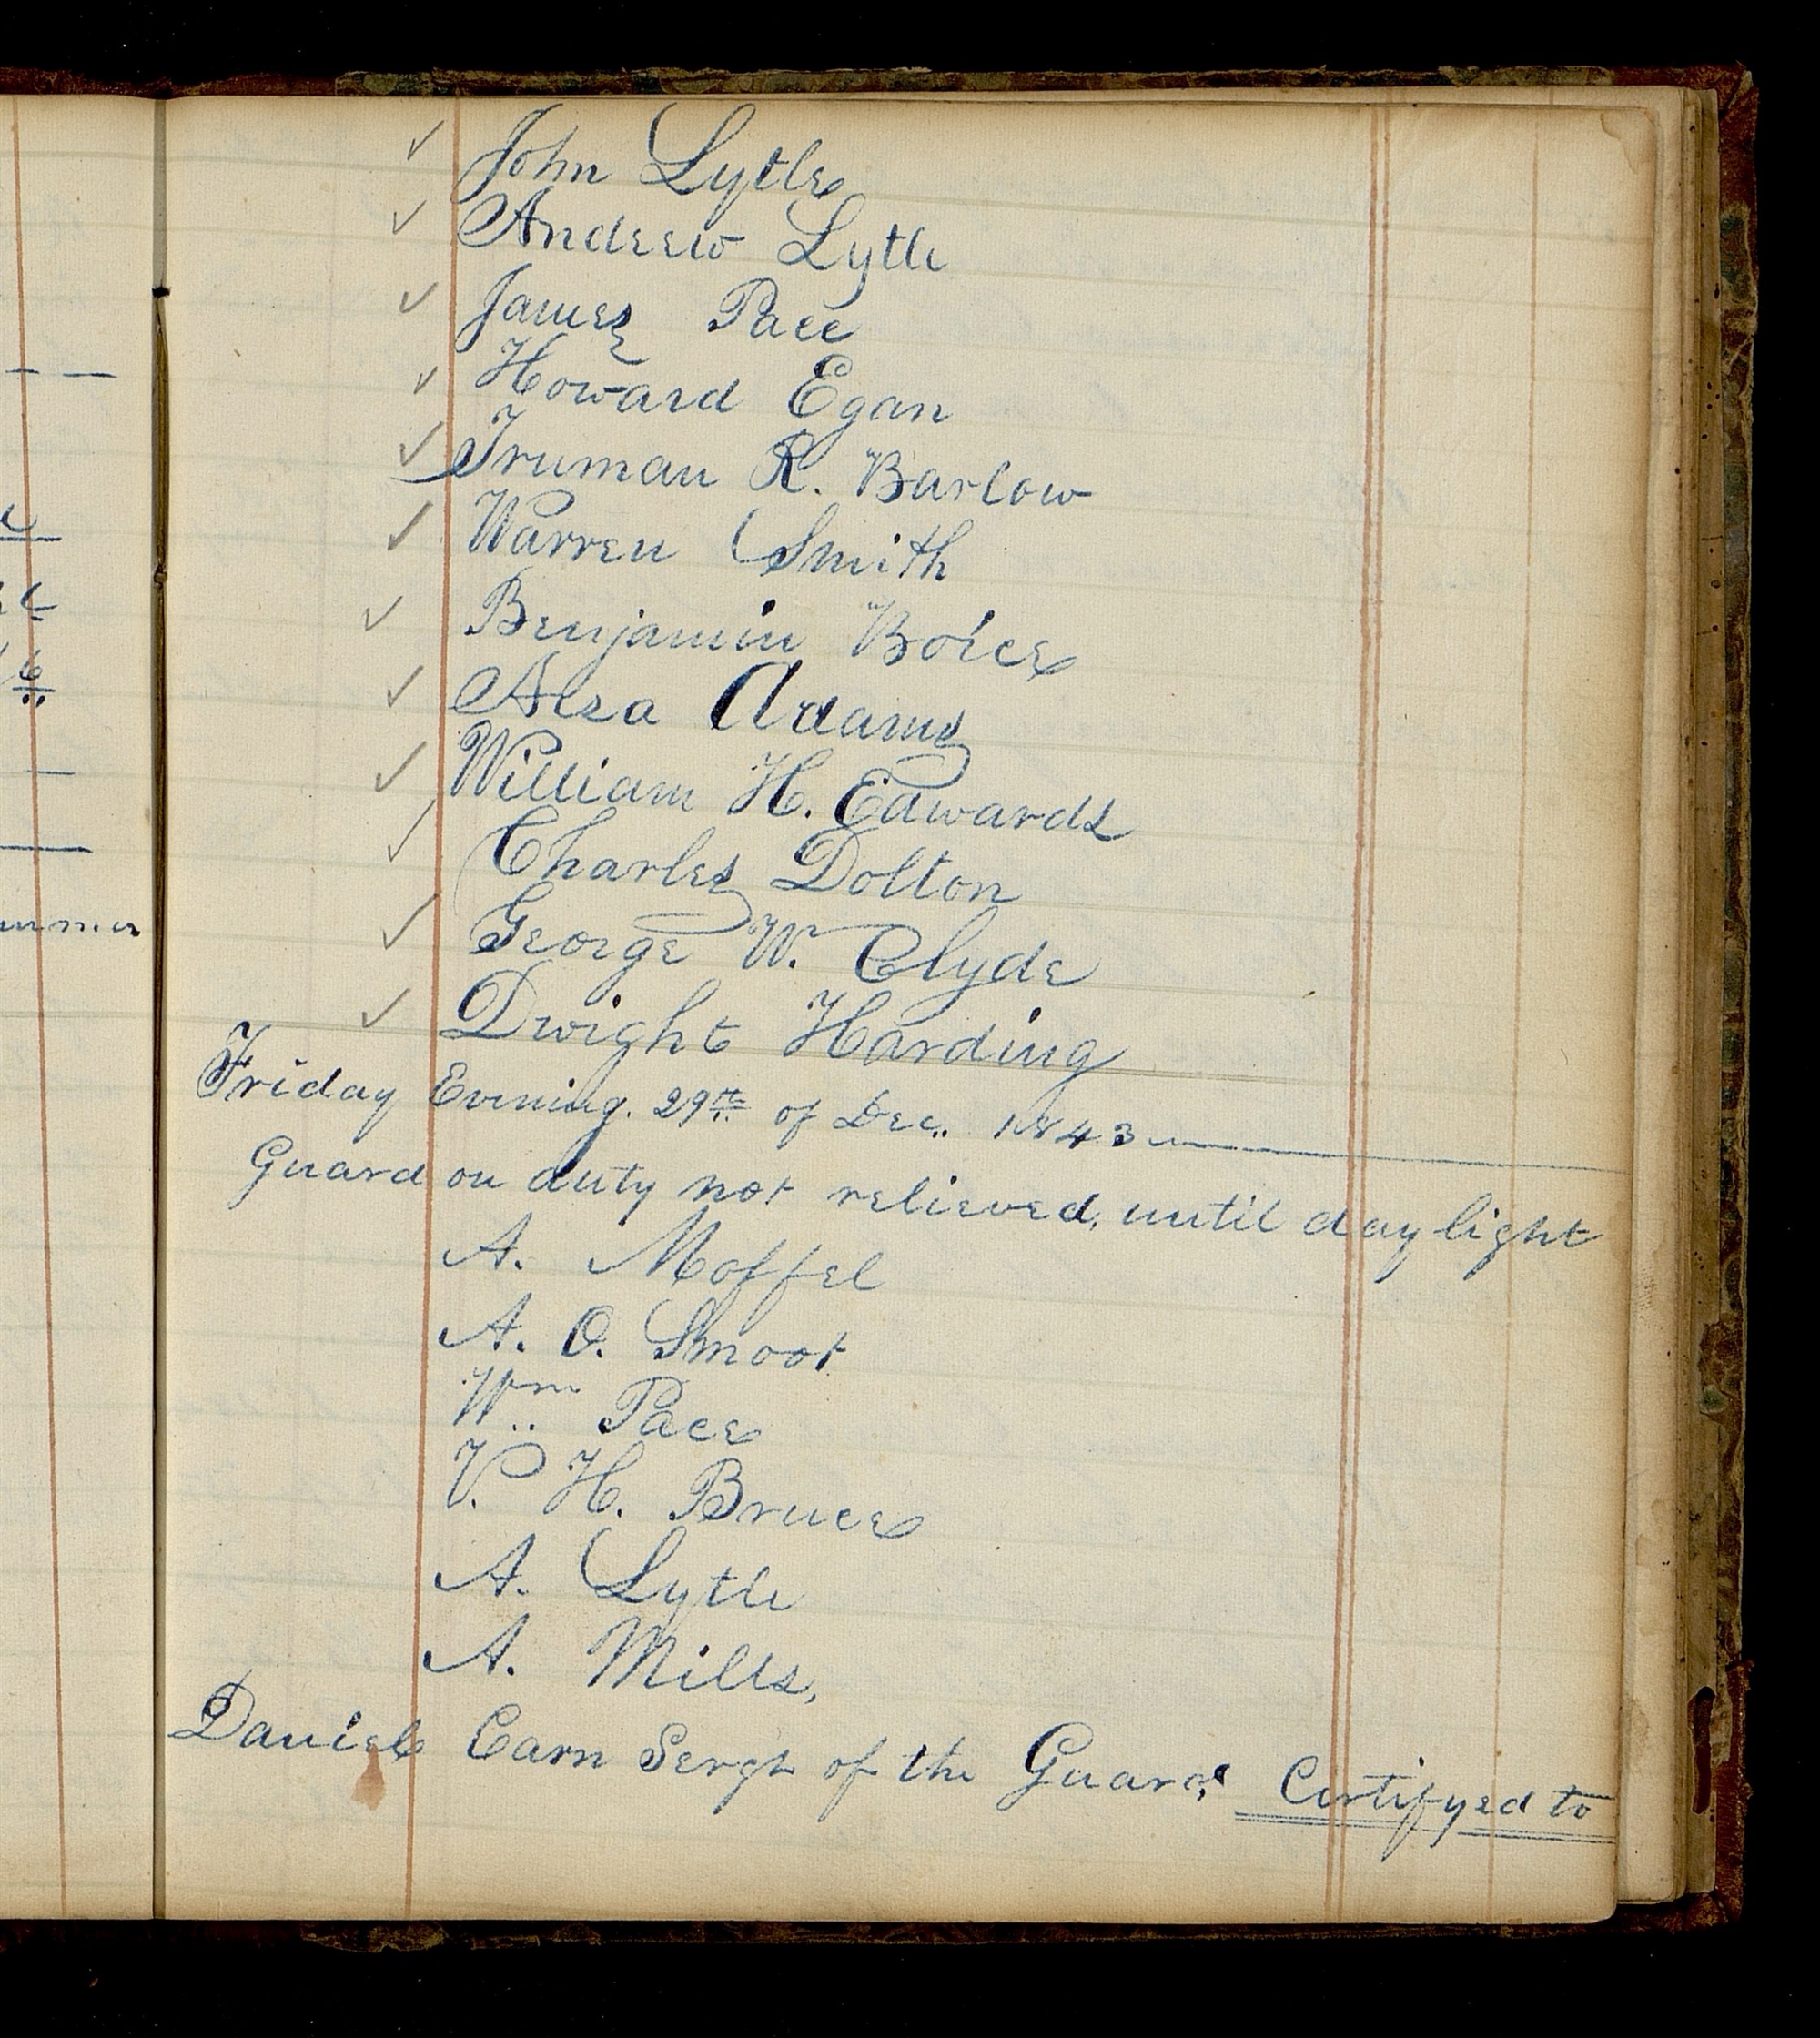 ✓ John Lytle
✓ Andrew Lytle
✓ James Pace
✓ Howard Egan
✓ Truman R. Barlow
✓ Warren Smith
✓ Benjamin Boice
✓ Alza Adams
✓ William H. Edwards
✓ Charles Dolton
✓ George W. Clyde
✓ Dwight Harding
Friday Evening. 29th of Dec. 1843
Guard on duty not relieved, until day light
A. Moffel
A. O. Smoot
Wm Pace
V. H. Bruce
A. Lytle
A. Mills,
Daniel Carn Sergt of the Guard, Certifyed to